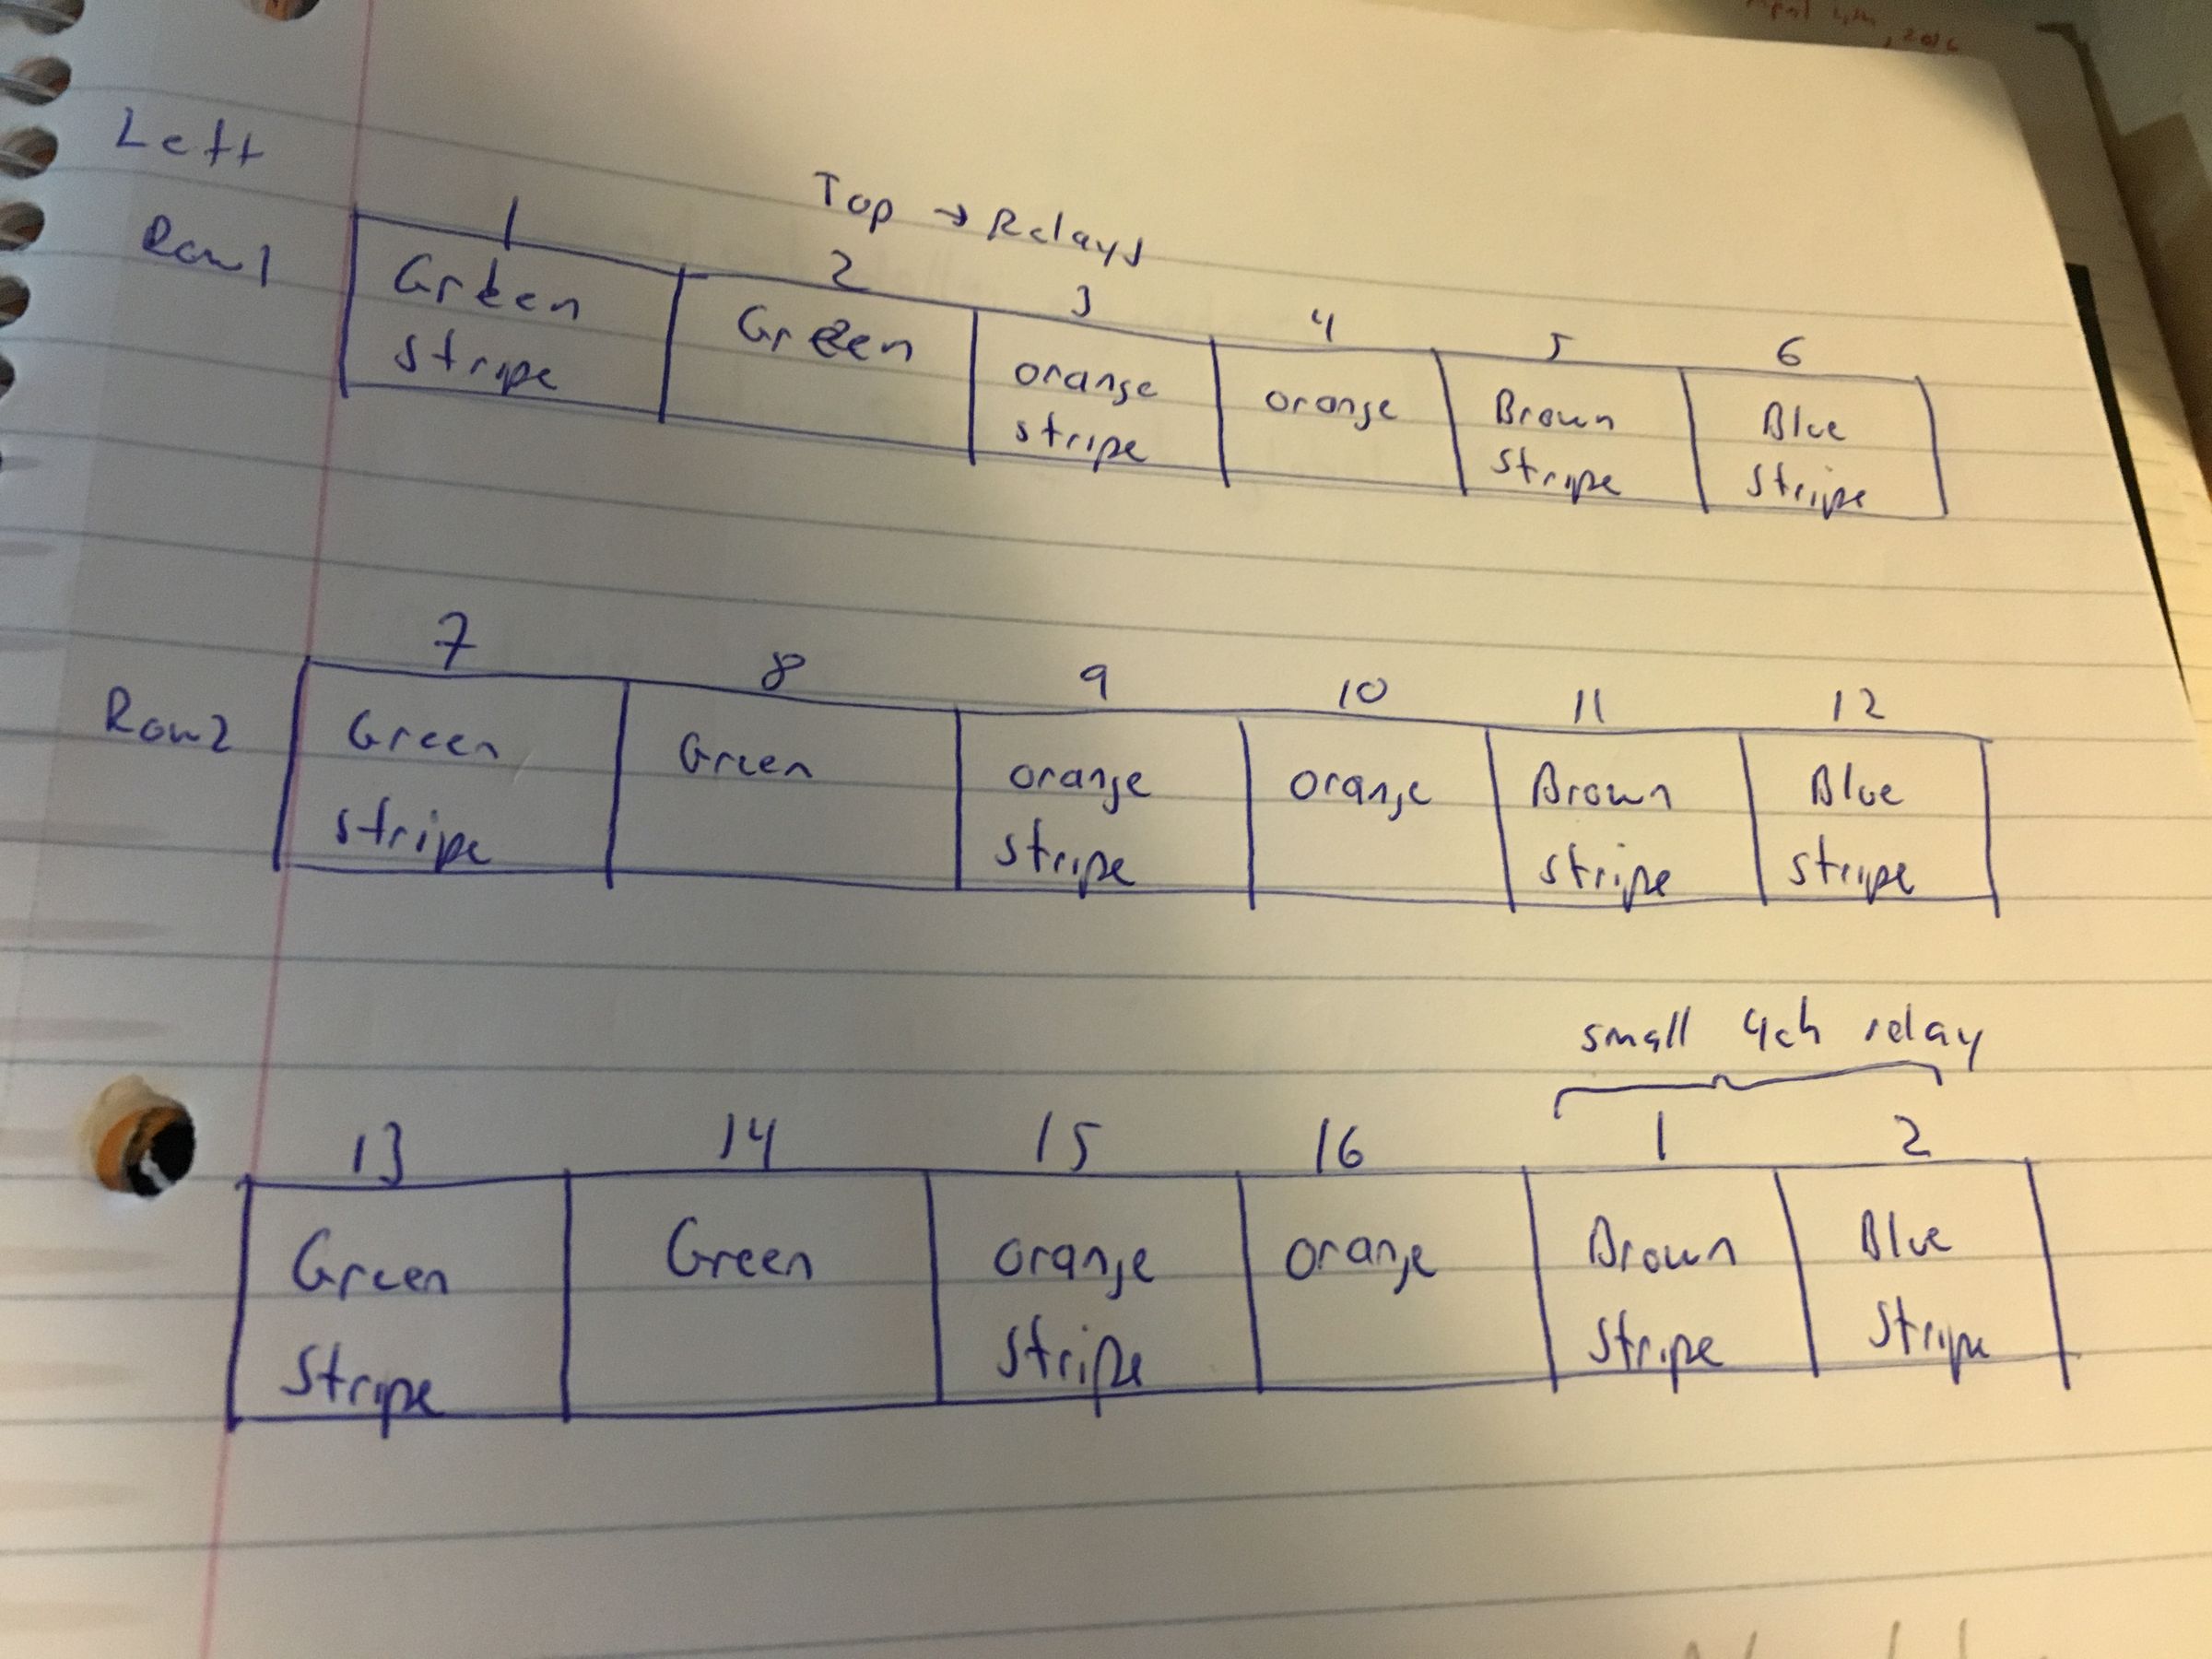 Left
Top → Relays
Row1
1 2 3 4 5 6
Green Green orange orange Brown Blue
stripe stripe stripe stripe
7 8 9 10 11 12
Row2
Green Green orange orange Brown Blue
stripe stripe stripe stripe
small 4ch relay
13 14 15 16 1 2
Green Green orange orange Brown Blue
Stripe stripe stripe stripe